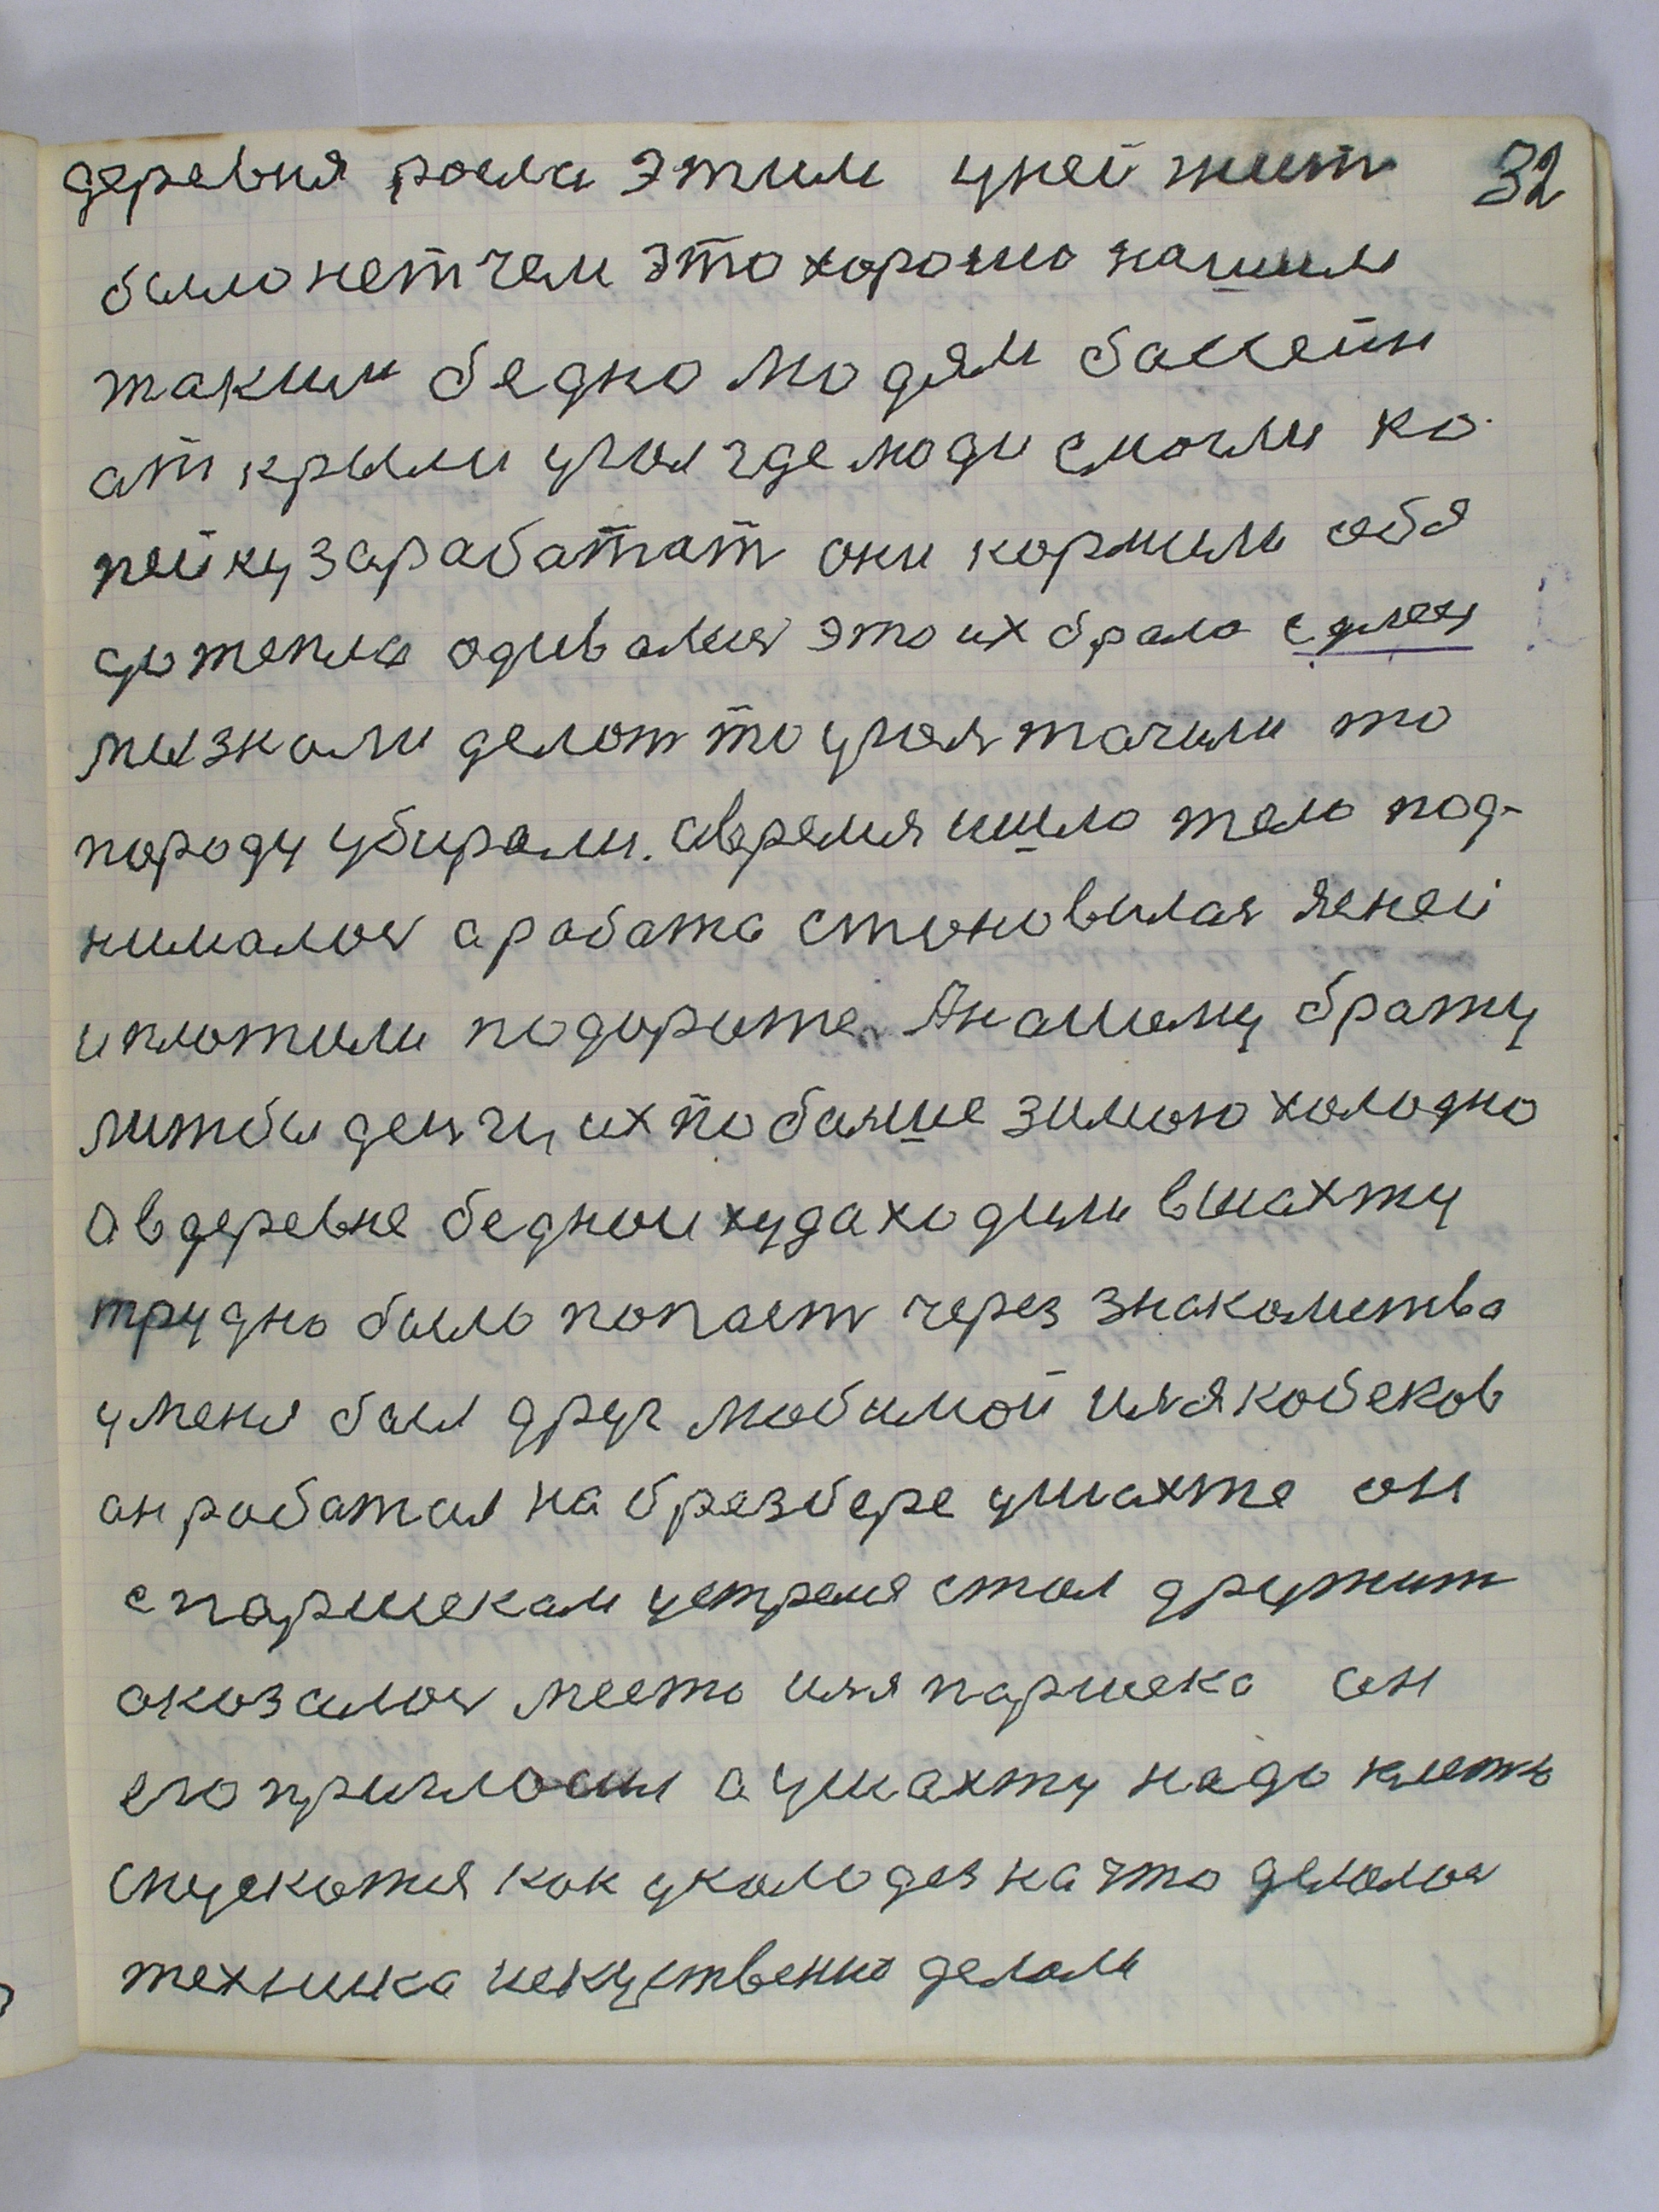 деревня росла этим уней жит 32
было нет чем это хорошо нашим
таким бедно людям бассейн
аткрыли угол где люди смогли ко-
пейку заработат они кормили себя
дотепла одивалися это их брало сдлех
мызнали делот то угол тачили то
породу убирали. авремя ишло тело под-
нималос а работа становилас ленеи
иплотили подороже. Анашому брату
литбы денги их побалше зимою холодно
авдеревне бедной худа ходили вшахту
трудно было попаст через знакомства
уменя был друг любимой иля кобеков
ан работал на брезбере ушахте он
спаршекам устремя стал дружит
оказалос место иля паршека он
его пригласил а ушахту надо клеть
спускотся как уколодез на что делалос
техника искуственно делали